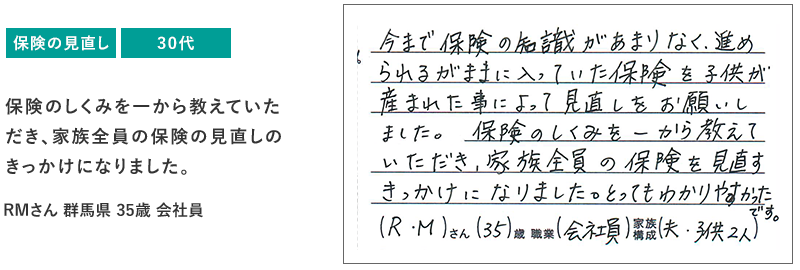 保険の見直し
30代
保険のしくみを一から教えていた
だき、家族全員の保険の見直しの
きっかけになりました。
RMさん 群馬県 35歳 会社員
今まで保険の知識があまりなく、進め
られるがままに入っていた保険を子供が
産まれた事によって見直しをお願いし
ました。 保険のしくみを一から教えて
いただき、家族全員の保険を見直す
きっかけになりました。とってもわかりやすかった
です。
(R・M)さん(35)歳 職業(会社員)家族構成(夫・子供2人)